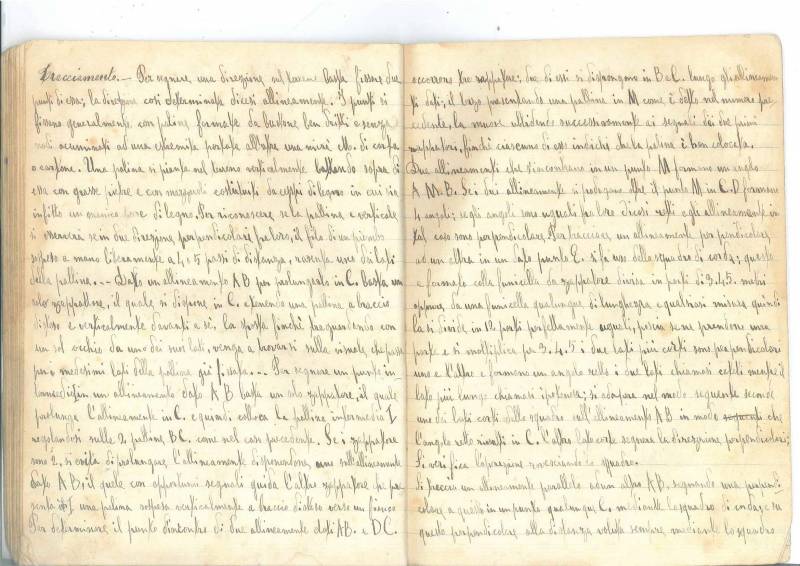 Tracciamento. — Per segnare una direzione sul terreno basta fissare due
punti di essa; la direzione così determinata dicesi allineamento. I punti si
fissano generalmente con paline formate da bastone ben dritti e senza
nodi acuminati ad una estremità portate all'altra una mira di carta
o cartone. Una palina si pianta nel terreno verticalmente battendo sopra di
essa con grosse pietre e con mazzuoli costituiti da ceppi di legno in cui sia
infitto un manico di legno. Per riconoscere se la pallina è verticale
si osserverà se in due direzioni perpendicolari fra loro, il filo di un piombo
sospeso a mano liberamente a 4 o 5 passi di distanza, rasenta uno dei lati
della pallina. — Dato un allineamento AB per prolungarlo in C. basta un
solo zappatore, il quale si dispone in C. e tenendo una pallina a braccio
disteso e verticalmente davanti a sé, la sposta finchè traguardando con
un sol occhio da uno dei suoi lati, venga a trovarsi sulla visuale che passa
per i medesimi lati della pallina già fissata. — Per segnare un punto in-
termedio in un allineamento dato AB basta un solo zappatore, il quale
prolunga l'allineamento in C. e quindi colloca la pallina intermedia I
regolandosi sulle 2 palline BC. come nel caso precedente. Se i zappatori
sono 2, si evita di prolungare l'allineamento disponendone uno sull'allineamento
dato AB, il quale con opportuni segnali guida l'altro zappatore che pre
senta in I una palina sospesa verticalmente a braccio disteso verso un fianco
Per determinare il punto d'incontro di due allineamenti dati AB. e DC.
occorrono tre zappatori; due di essi si dispongono in B e C. lungo gli allineamen
ti dati; il terzo presentando una pallina in M come è detto nel numero pre
cedente, la muove ubbidendo successivamente ai segnali dei due primi
zappatori, finchè ciascuno di essi indichi che la palina è ben colocata.
Due allineamenti che s'incontrano in un punto M formano un angolo
A M B. Se i due allineamenti si prolungano oltre il punto M in C.D formano
4 angoli; se gli angoli sono uguali fra loro diconsi retti e gli allineamenti in
tal caso sono perpendicolari. Per tracciare un allineamento perpendicolare
ad un altro in un dato punto E. si fa uso della squadra di corda; questa
è formata colla funicella da zappatore divisa in parti di 3.4.5. metri
oppure da una funicella qualunque di lunghezza e qualsiasi misura quindi
la si divide in 12 parti perfettamente uguali, poscia se ne prendono una
parte e si moltiplica per 3.4.5 i due lati più corti sono perpendicolari
uno e l'altro e formono un angolo retto i due lati chiamasi cateti mentre il
lato più lungo chiamasi ipotenusa; si adopera nel modo seguente si tende
uno dei lati corti della squadra sull'allineamento AB in modo che
l'angolo retto risulti in C. l'altro lato corto segnerà la direzione perpendicolare;
Si verifica l'operazione rovesciando la squadra.
Si traccia un allineamento parallelo ad un altro AB. segnando una perpendi
colare a questo in un punto qualunque C. mediante la squadra di corda; e su
questa perpendicolare alla distanza voluta sempre mediante la squadra